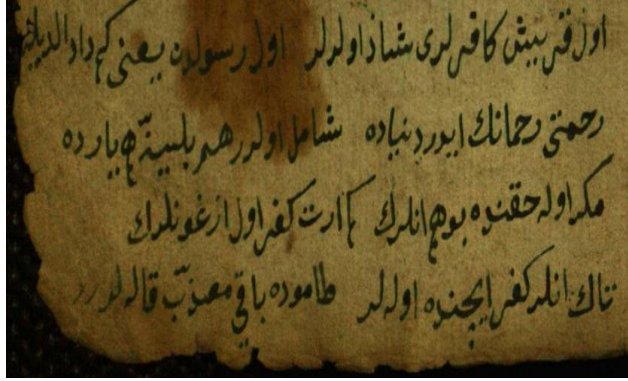 اول قریش کافرلری شاذ اولرلر اول رسولدن یعنی کم داد الدیلر
رحمتی رحمانك ایور دنیاده شامل اولور هم بلینه هم یارده
مکر اوله حقنده بو هم انلرك کم ارت کفر اول ازغونلرك
تاك انلر کفر ایچنده اوله لر طاموده باقی معذب قاله لر